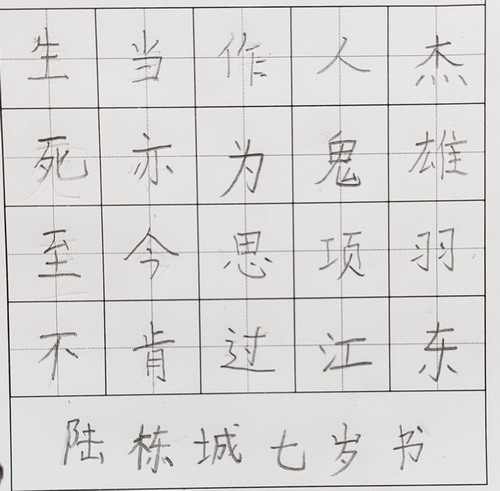 生当作人杰
死亦为鬼雄
至今思项羽
不肯过江东
陆栋城七岁书